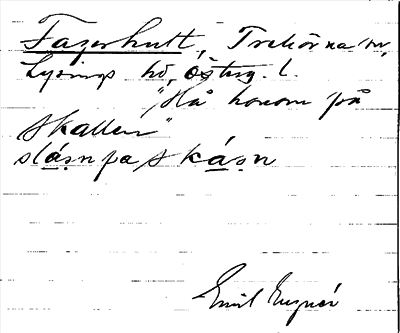 Fagerhult, Trehörna sn,
Lysings hd, Östug. l.
"Slå honom på
skallen"
slá̱ṣn pa ská̱ṣn
Emil Engnér